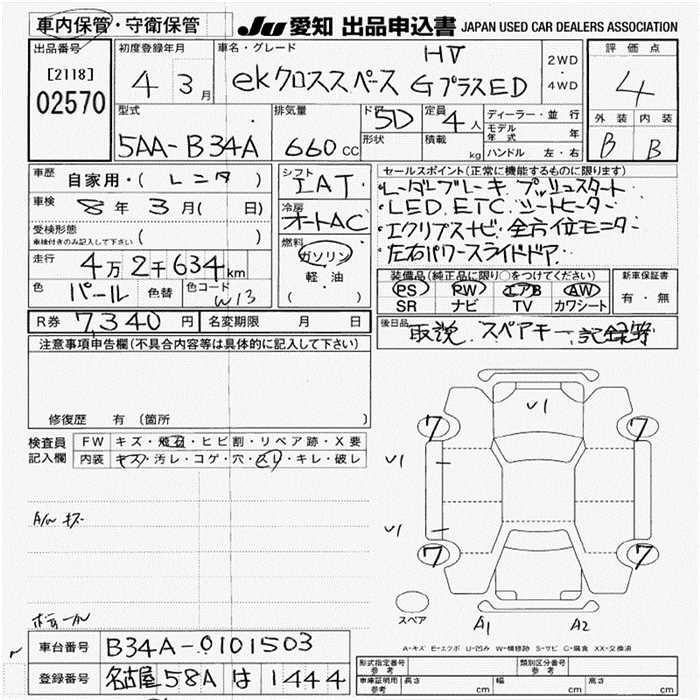 車内保管・守衛保管
JU 愛知 出品申込書 JAPAN USED CAR DEALERS ASSOCIATION
出品番号
[2118]
02570
初度登録年月
4 3月
車名・グレード
HV
ekクロススペース GプラスED
2WD
・
4WD
評価点
4
外装 内装
B B
型式
5AA-B34A
排気量
660cc
ドア
5D
形状
定員
4人
積載 kg
ディーラー・並行
モデル年式 年
ハンドル 左・右
車歴 自家用・( レンタ )
車検 8年 3月( 日)
受検形態
車検付きのみ記入して下さい ( )
走行 4万2千634km
色 パール 色替 色コード W13
シフト
IAT
冷房
オートAC
燃料
ガソリン
軽・油
( )
セールスポイント(正常に機能するものに限ります)
・レーダーブレーキ プッシュスタート
・LED.ETC.シートヒーター
・エクリプスナビ・全方位モニター
・左右パワースライドドア.
装備品(純正品に限り○をつけてください)
PS PW エアB AW
SR ナビ TV カワシート
新車保証書
有・無
R券 7,340円 名変期限 月 日
後日品 取説.スペアキー.記録等
注意事項申告欄(不具合内容等は具体的に記入して下さい)
修復歴 有(箇所 )
検査員
記入欄
FW キズ・飛石・ヒビ割・リペア跡・X要
内装 キズ・汚レ・コゲ・穴・スレ・キレ・破レ
A/W キズ
U1
7 7
U1
U1
7 7
スペア
A1 A2
A-キズ E-エクボ U-凹み W-補修跡 S-サビ C-腐食 XX-交換済
車台番号 B34A-0101503
登録番号 名古屋 58A は 1444
型式指定番号
参考
類別区分番号
参考
車庫証明用
参考
長さ cm 幅 cm 高さ cm